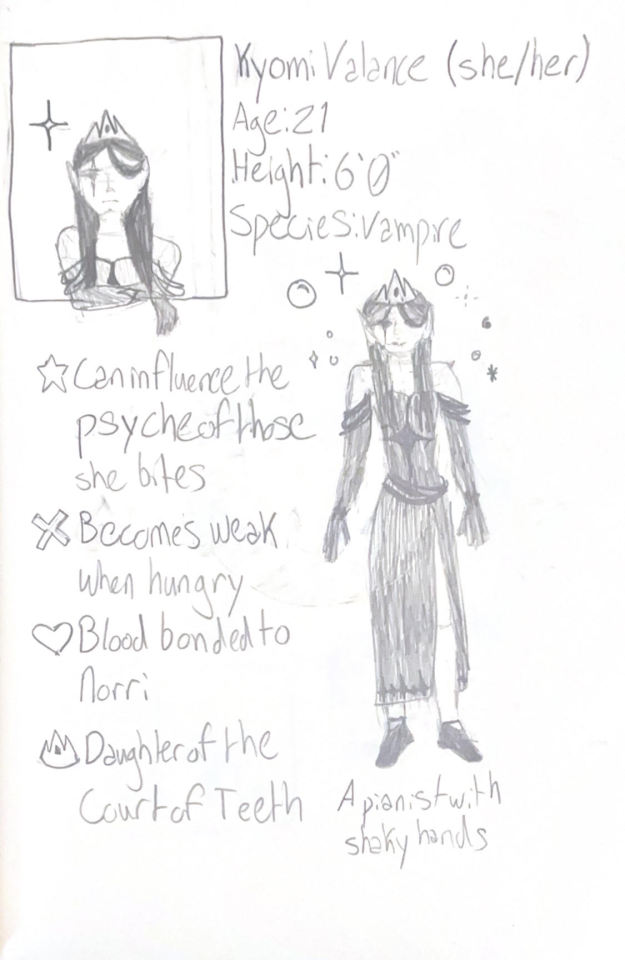 Kyomi Valance (she/her)
Age: 21
Height: 6'0"
Species: Vampire
Can influence the
psyche of those
she bites
Becomes weak
when hungry
Blood bonded to
Norri
Daughter of the
Court of Teeth
A pianist with
shaky hands